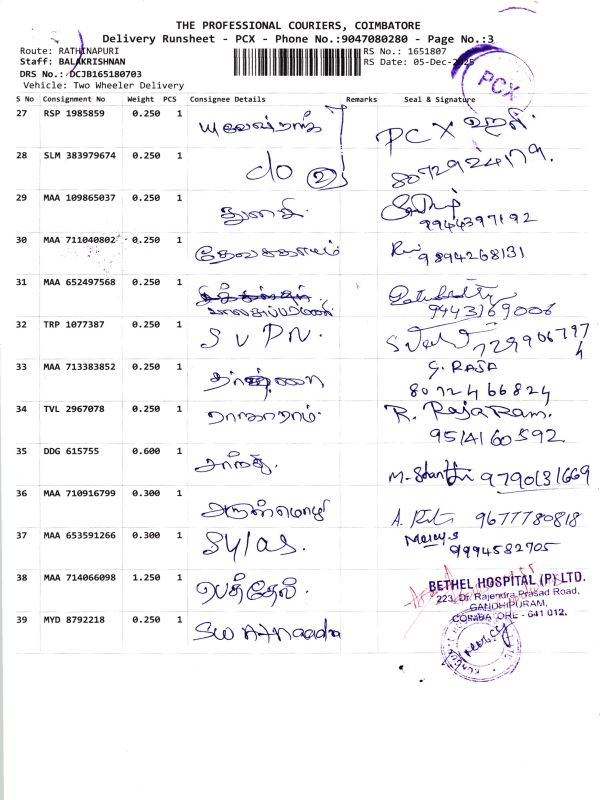 THE PROFESSIONAL COURIERS, COIMBATORE
Delivery Runsheet - PCX - Phone No.:9047080280 - Page No.:3
Route: RATHINAPURI
RS No.: 1651807
Staff: BALAKRISHNAN
RS Date: 05-Dec-2025
DRS No.: DCJB165180703
Vehicle: Two Wheeler Delivery
PCX
S No Consignment No Weight PCS Consignee Details Remarks Seal & Signature
27 RSP 1985859 0.250 1 PCX
28 SLM 383979674 0.250 1 c/o 2
8072924179
29 MAA 109865037 0.250 1 துளசி
9944397192
30 MAA 711040802 0.250 1
9894268131
31 MAA 652497568 0.250 1
9443169006
32 TRP 1077387 0.250 1 S V P N.
7299067974
33 MAA 713383852 0.250 1 G. RAJA
8072466824
34 TVL 2967078 0.250 1 ராஜாராம். R. RajaRam.
9514160592
35 DDG 615755 0.600 1 சாந்தி. M. Shanthi 9790131669
36 MAA 710916799 0.300 1 அருள்மொழி 9677780818
37 MAA 653591266 0.300 1 Sylas. Mercy.S
9994582705
38 MAA 714066098 1.250 1 பெத்தேல்
BETHEL HOSPITAL (P) LTD.
223, Dr. Rajendra Prasad Road,
GANDHIPURAM,
COIMBATORE - 641 012.
39 MYD 8792218 0.250 1